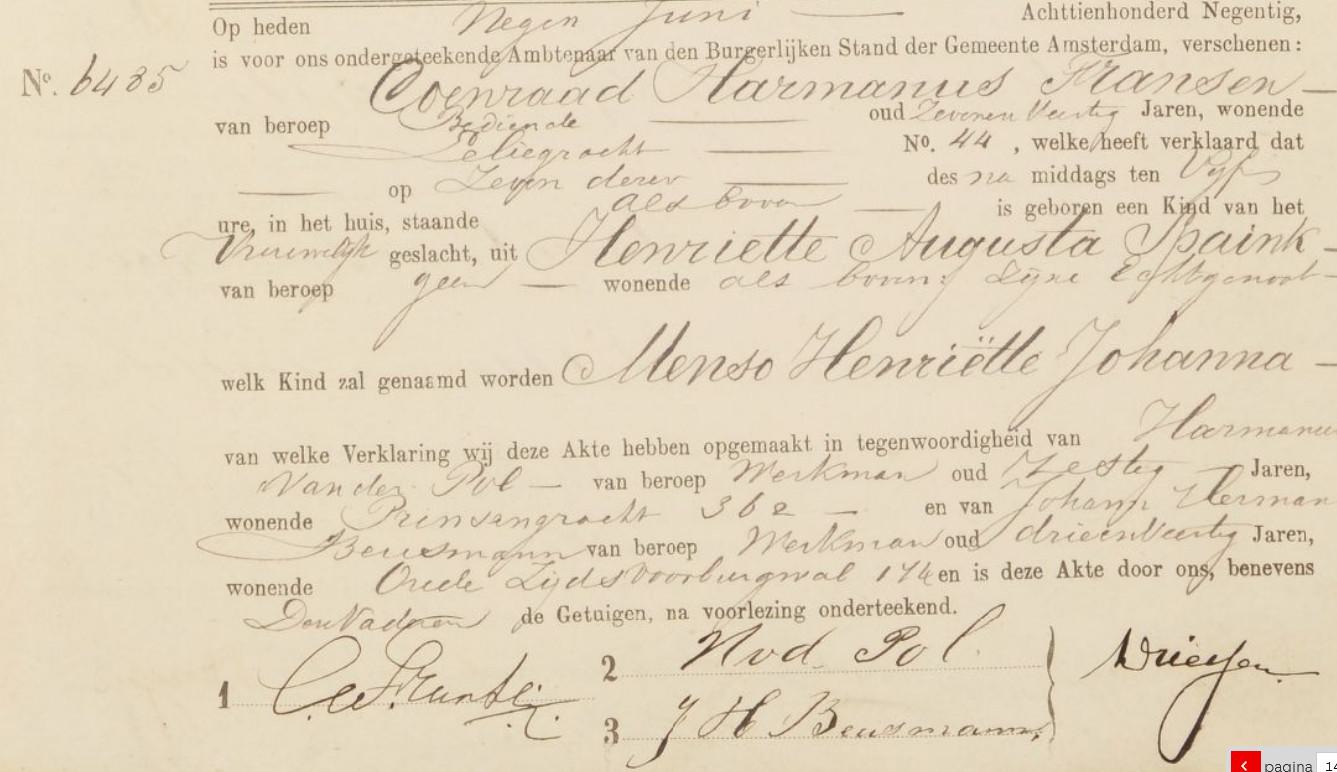 Op heden Negen Juni Achttienhonderd Negentig,
is voor ons ondergeteekende Ambtenaar van den Burgerlijken Stand der Gemeente Amsterdam, verschenen:
No. 6485
Coenraad Harmanus Fransen
van beroep Bediende oud Zevenen Veertig Jaren, wonende
Leliegracht No. 44, welke heeft verklaard dat
op Zeven dezer des na middags ten Vijf
ure, in het huis, staande als boven is geboren een Kind van het
Vrouwelijk geslacht, uit Henriette Augusta Spaink
van beroep geen wonende als boven; Zijne Echtgenoot
welk Kind zal genaamd worden Menso Henriëtte Johanna
van welke Verklaring wij deze Akte hebben opgemaakt in tegenwoordigheid van Harmanus
Van der Pol van beroep Werkman oud Zestig Jaren,
wonende Prinsengracht 362 en van Johann Herman
Beusmann van beroep Werkman oud drieenveertig Jaren,
wonende Oude Zijds Voorburgwal 174 en is deze Akte door ons, benevens
Den Vader en de Getuigen, na voorlezing onderteekend.
1
2 Hvd Pol
3 J H Beusmann
pagina 14